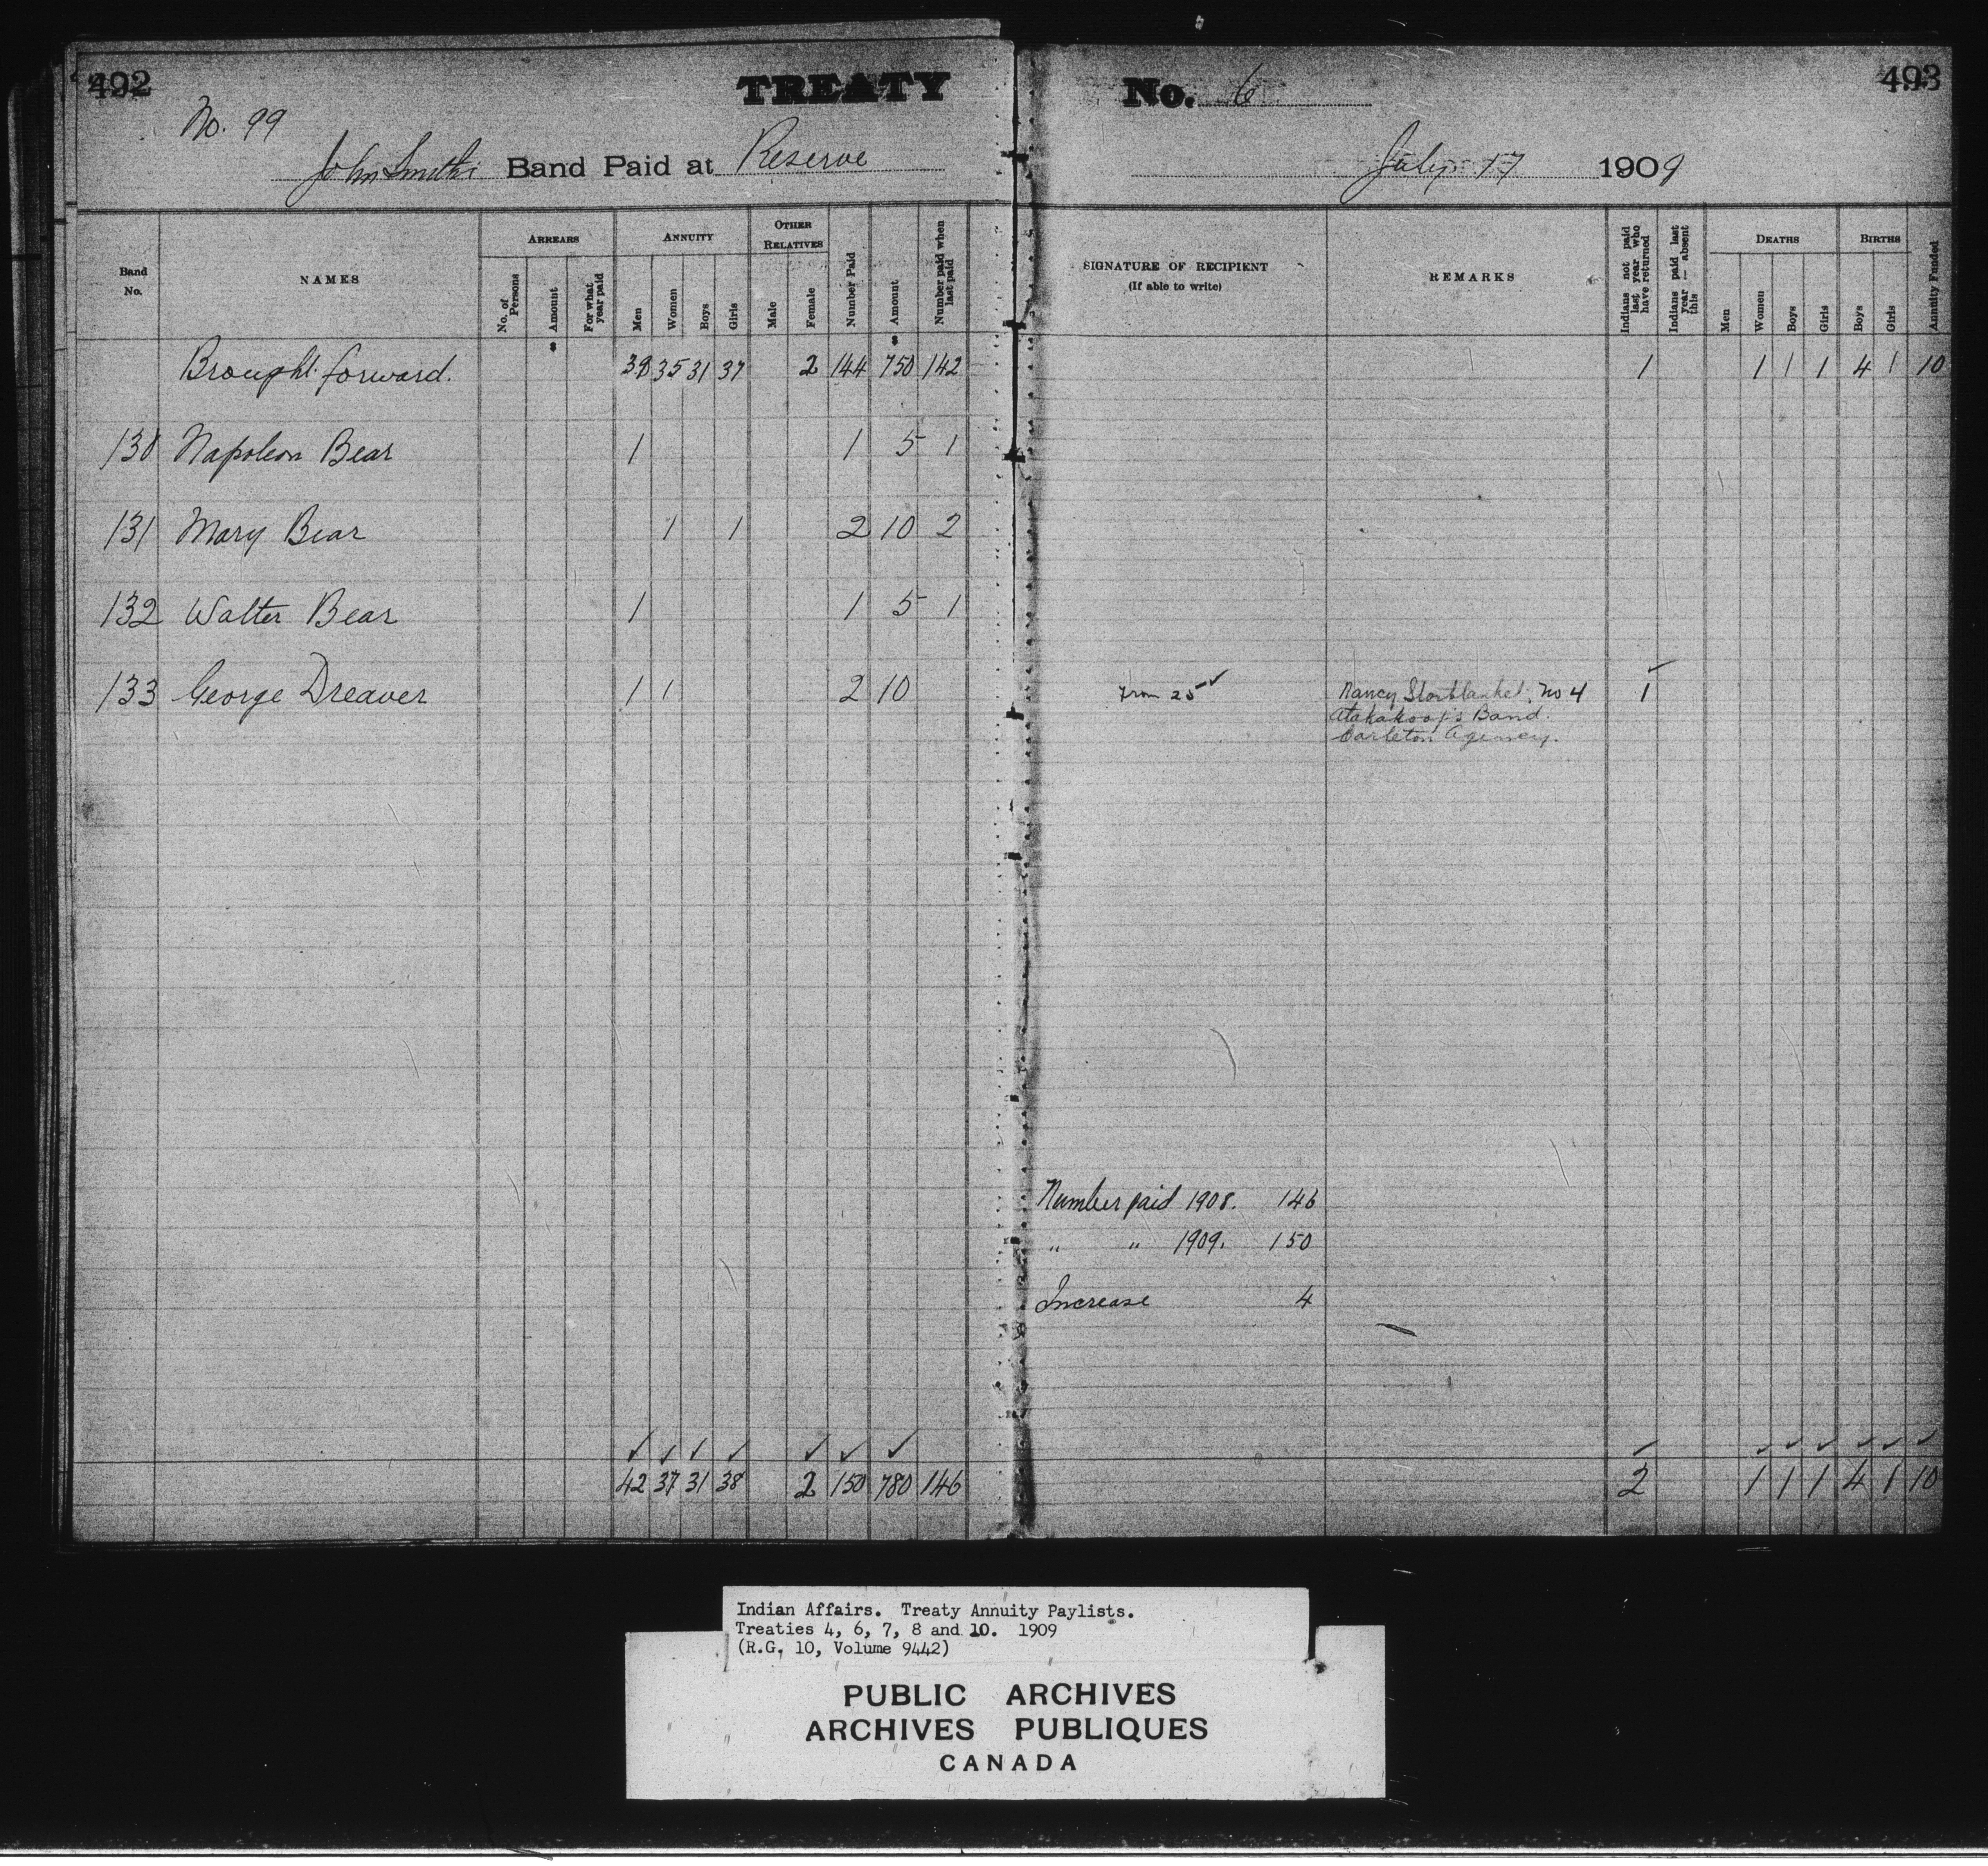 492
TREATY No. 6
493
No. 99
John Smith's Band Paid at Reserve
July 17 1909
Band No. NAMES ARREARS No. of Persons Amount For what year paid ANNUITY Men Women Boys Girls OTHER RELATIVES Male Female Number Paid Amount Number paid when last paid
SIGNATURE OF RECIPIENT (If able to write) REMARKS Indians not paid last year who have returned Indians paid last year — absent this DEATHS Men Women Boys Girls BIRTHS Boys Girls Annuity Funded
$ $
Brought forward. 39 35 31 37 2 144 750 142 1 1 1 1 4 1 10
130 Napoleon Bear 1 1 5 1
131 Mary Bear 1 1 2 10 2
132 Walter Bear 1 1 5 1
133 George Dreaver 1 1 2 10 From 25 ✓ Nancy Starblanket. No 4 1 ✓
Atakakoop's Band.
Carleton Agency.
Number paid 1908. 146
" " 1909. 150
Increase 4
✓ ✓ ✓ ✓ ✓ ✓ ✓ ✓ ✓ ✓ ✓ ✓ ✓ ✓
42 37 31 38 2 150 780 146 2 1 1 1 4 1 10
Indian Affairs. Treaty Annuity Paylists.
Treaties 4, 6, 7, 8 and 10. 1909
(R.G. 10, Volume 9442)
PUBLIC ARCHIVES
ARCHIVES PUBLIQUES
CANADA